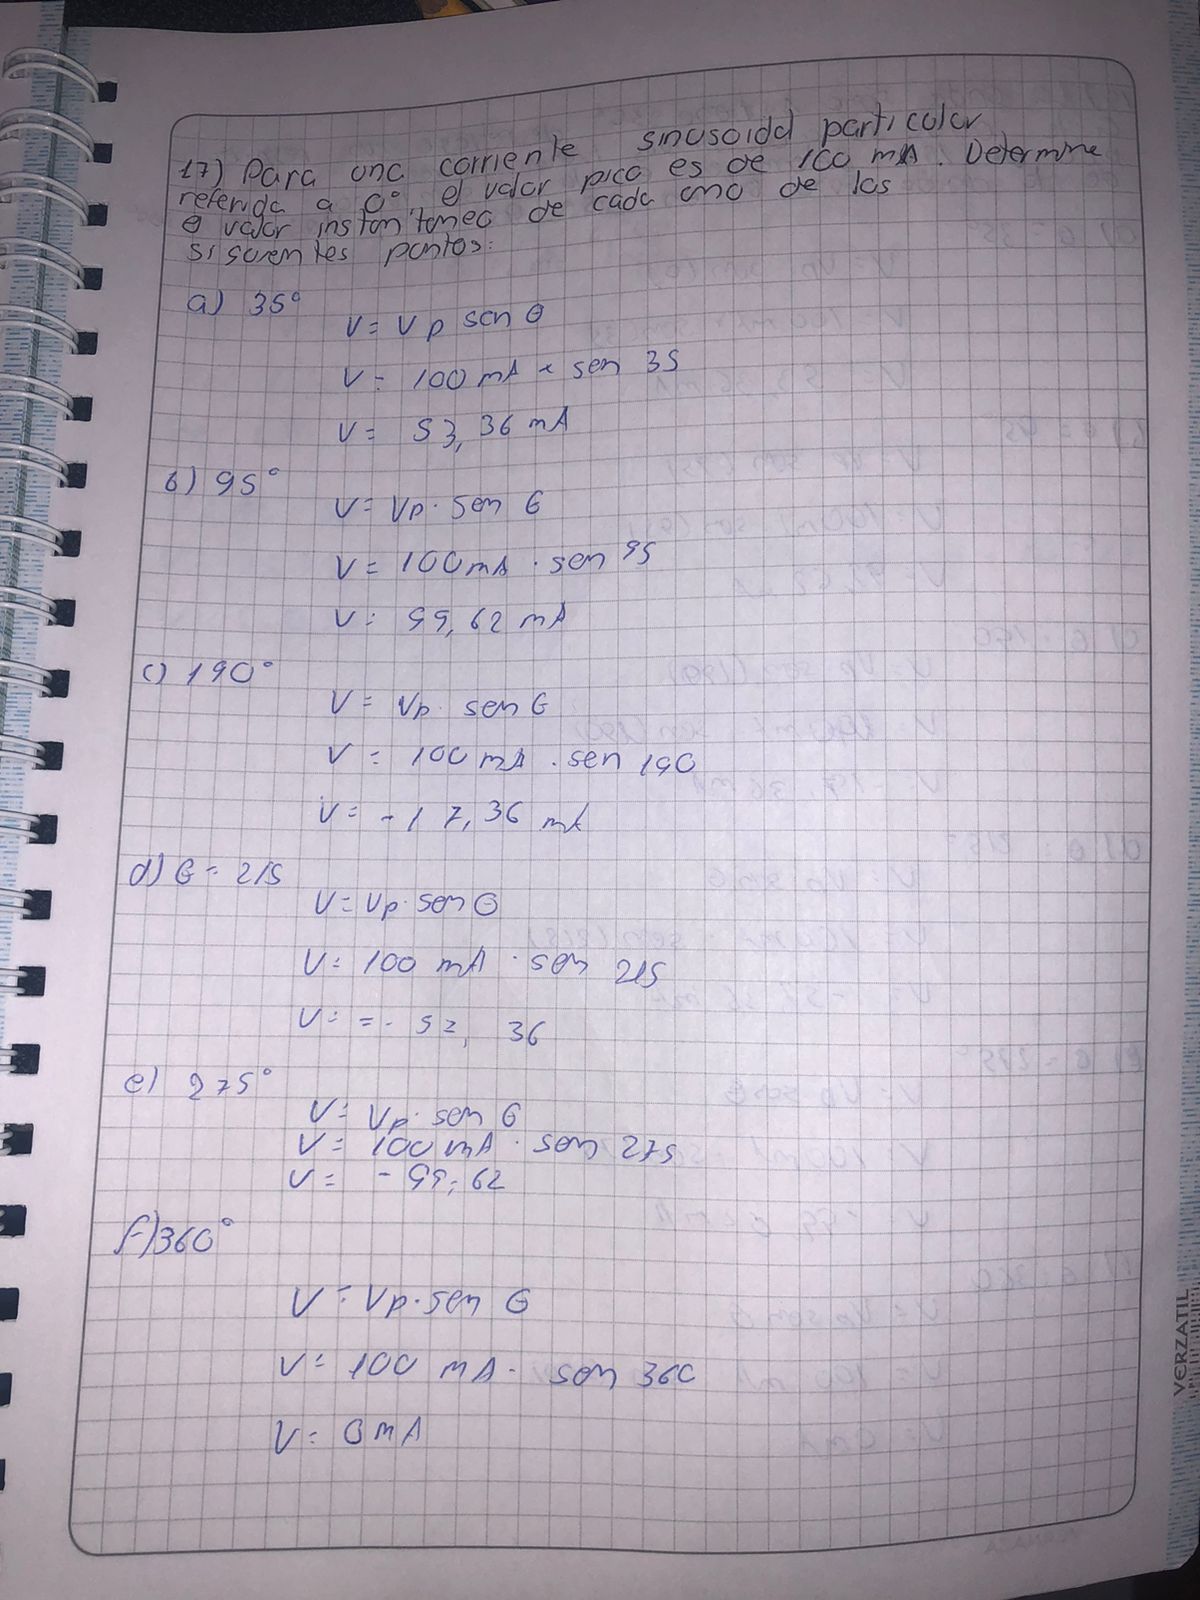 17) Para una corriente sinusoidal particular
referida a 0° el valor pico es de 100 mA. Determine
el valor instantáneo de cada uno de los
siguientes puntos:
a) 35°
V = Vp sen θ
V = 100 mA × sen 35
V = 53,36 mA
b) 95°
V = Vp · sen θ
V = 100 mA · sen 95
V = 99,62 mA
c) 190°
V = Vp · sen θ
V = 100 mA · sen 190
V = -17,36 mA
d) θ = 215
V = Vp · sen θ
V = 100 mA · sen 215
V = = - 57, 36
e) 275°
V = Vp · sen θ
V = 100 mA · sen 275
V = - 99,62
f) 360°
V = Vp · sen θ
V = 100 mA · sen 360
V = 0 mA
VERZATIL